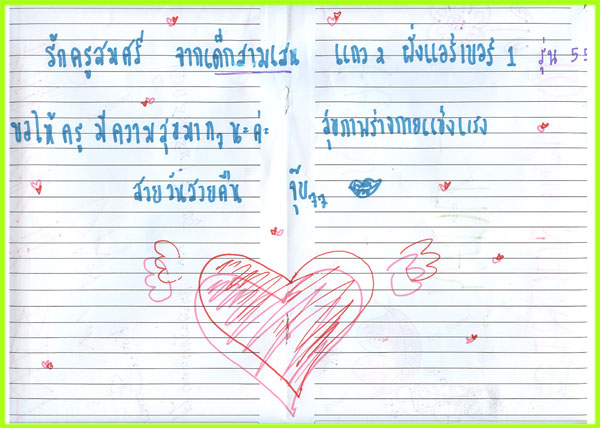 รักครูสมศรี จากเด็กสามเสน แถว 2 ฝั่งแอร์เบอร์ 1 รุ่น 55
ขอให้ครู มีความสุขมากๆ นะค่ะ สุขภาพร่างกายแข็งแรง
สวยวันสวยคืน จุ๊บๆๆ